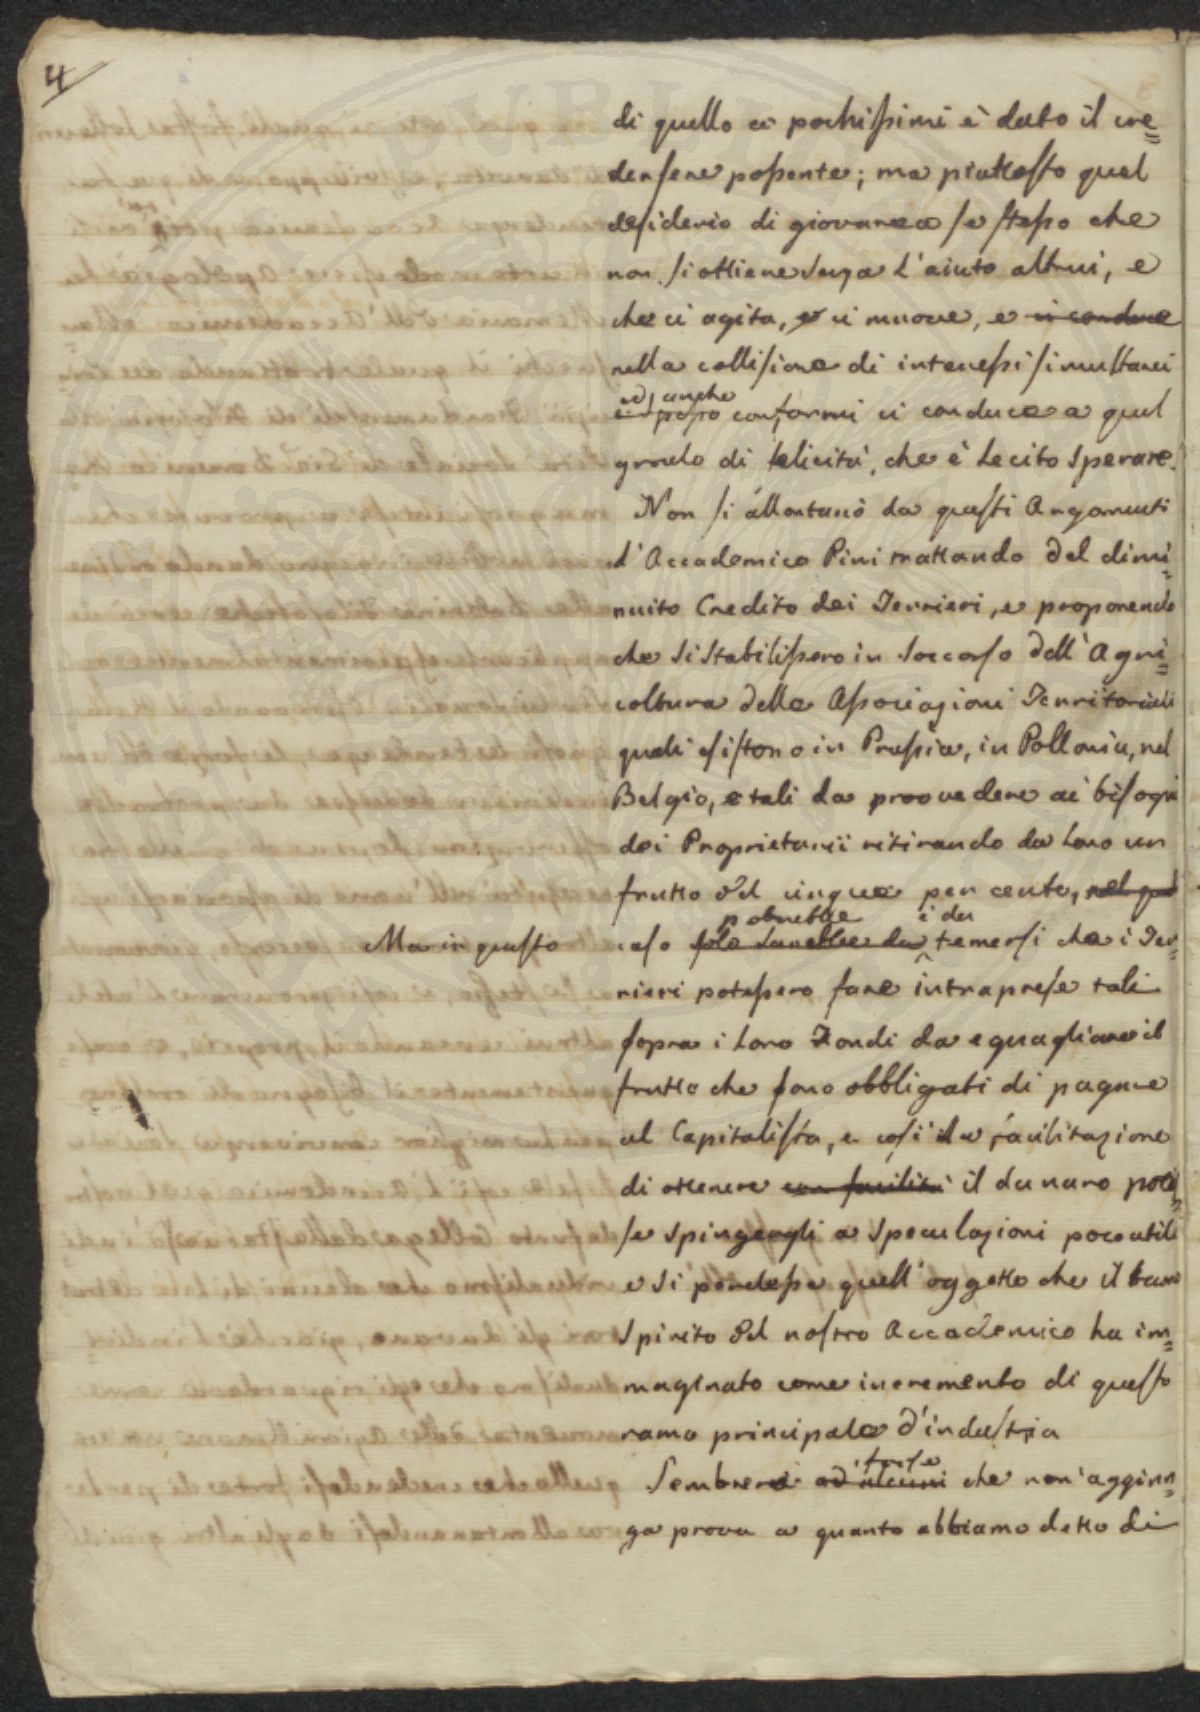 4
di quello ai pochissimi è dato il cre=
dersene possente; ma piuttosto quel
desiderio di giovare a se stesso che
non si ottiene senza l'aiuto altrui, e
che ci agita, e ci muove, e ci conduce
nella collisione di interessi simultanei
ed anche
e spesso conformi ci conduce a quel
grado di felicità, che è lecito sperare.
Non si allontanò da questi Argomenti
l'Accademico Pini trattando del dimi=
nuito Credito dei Terrieri, e proponendo
che si stabilissero in soccorso dell'Agri=
coltura delle Associazioni Territoriali
quali esistono in Prussia, in Pollonia, nel
Belgio, e tali da provvedere ai bisogni
dei Proprietarii ritirando da loro un
frutto del cinque per cento, nel qual
potrebbe è da
Ma in questo caso solo sarebbe da temersi che i Ter=
rieri potessero fare intraprese tali
sopra i loro Fondi da eguagliare il
frutto che sono obbligati di pagare
al Capitalista, e così la facilitazione
di ottenere con facilità il danaro potes=
se spingergli a speculazioni poco utili
e si perdesse quell'oggetto che il buono
spirito del nostro Accademico ha im=
maginato come incremento di questo
ramo principale d'industria
forse
Sembrerà ad alcuni che non aggiun=
ga prova a quanto abbiamo detto di